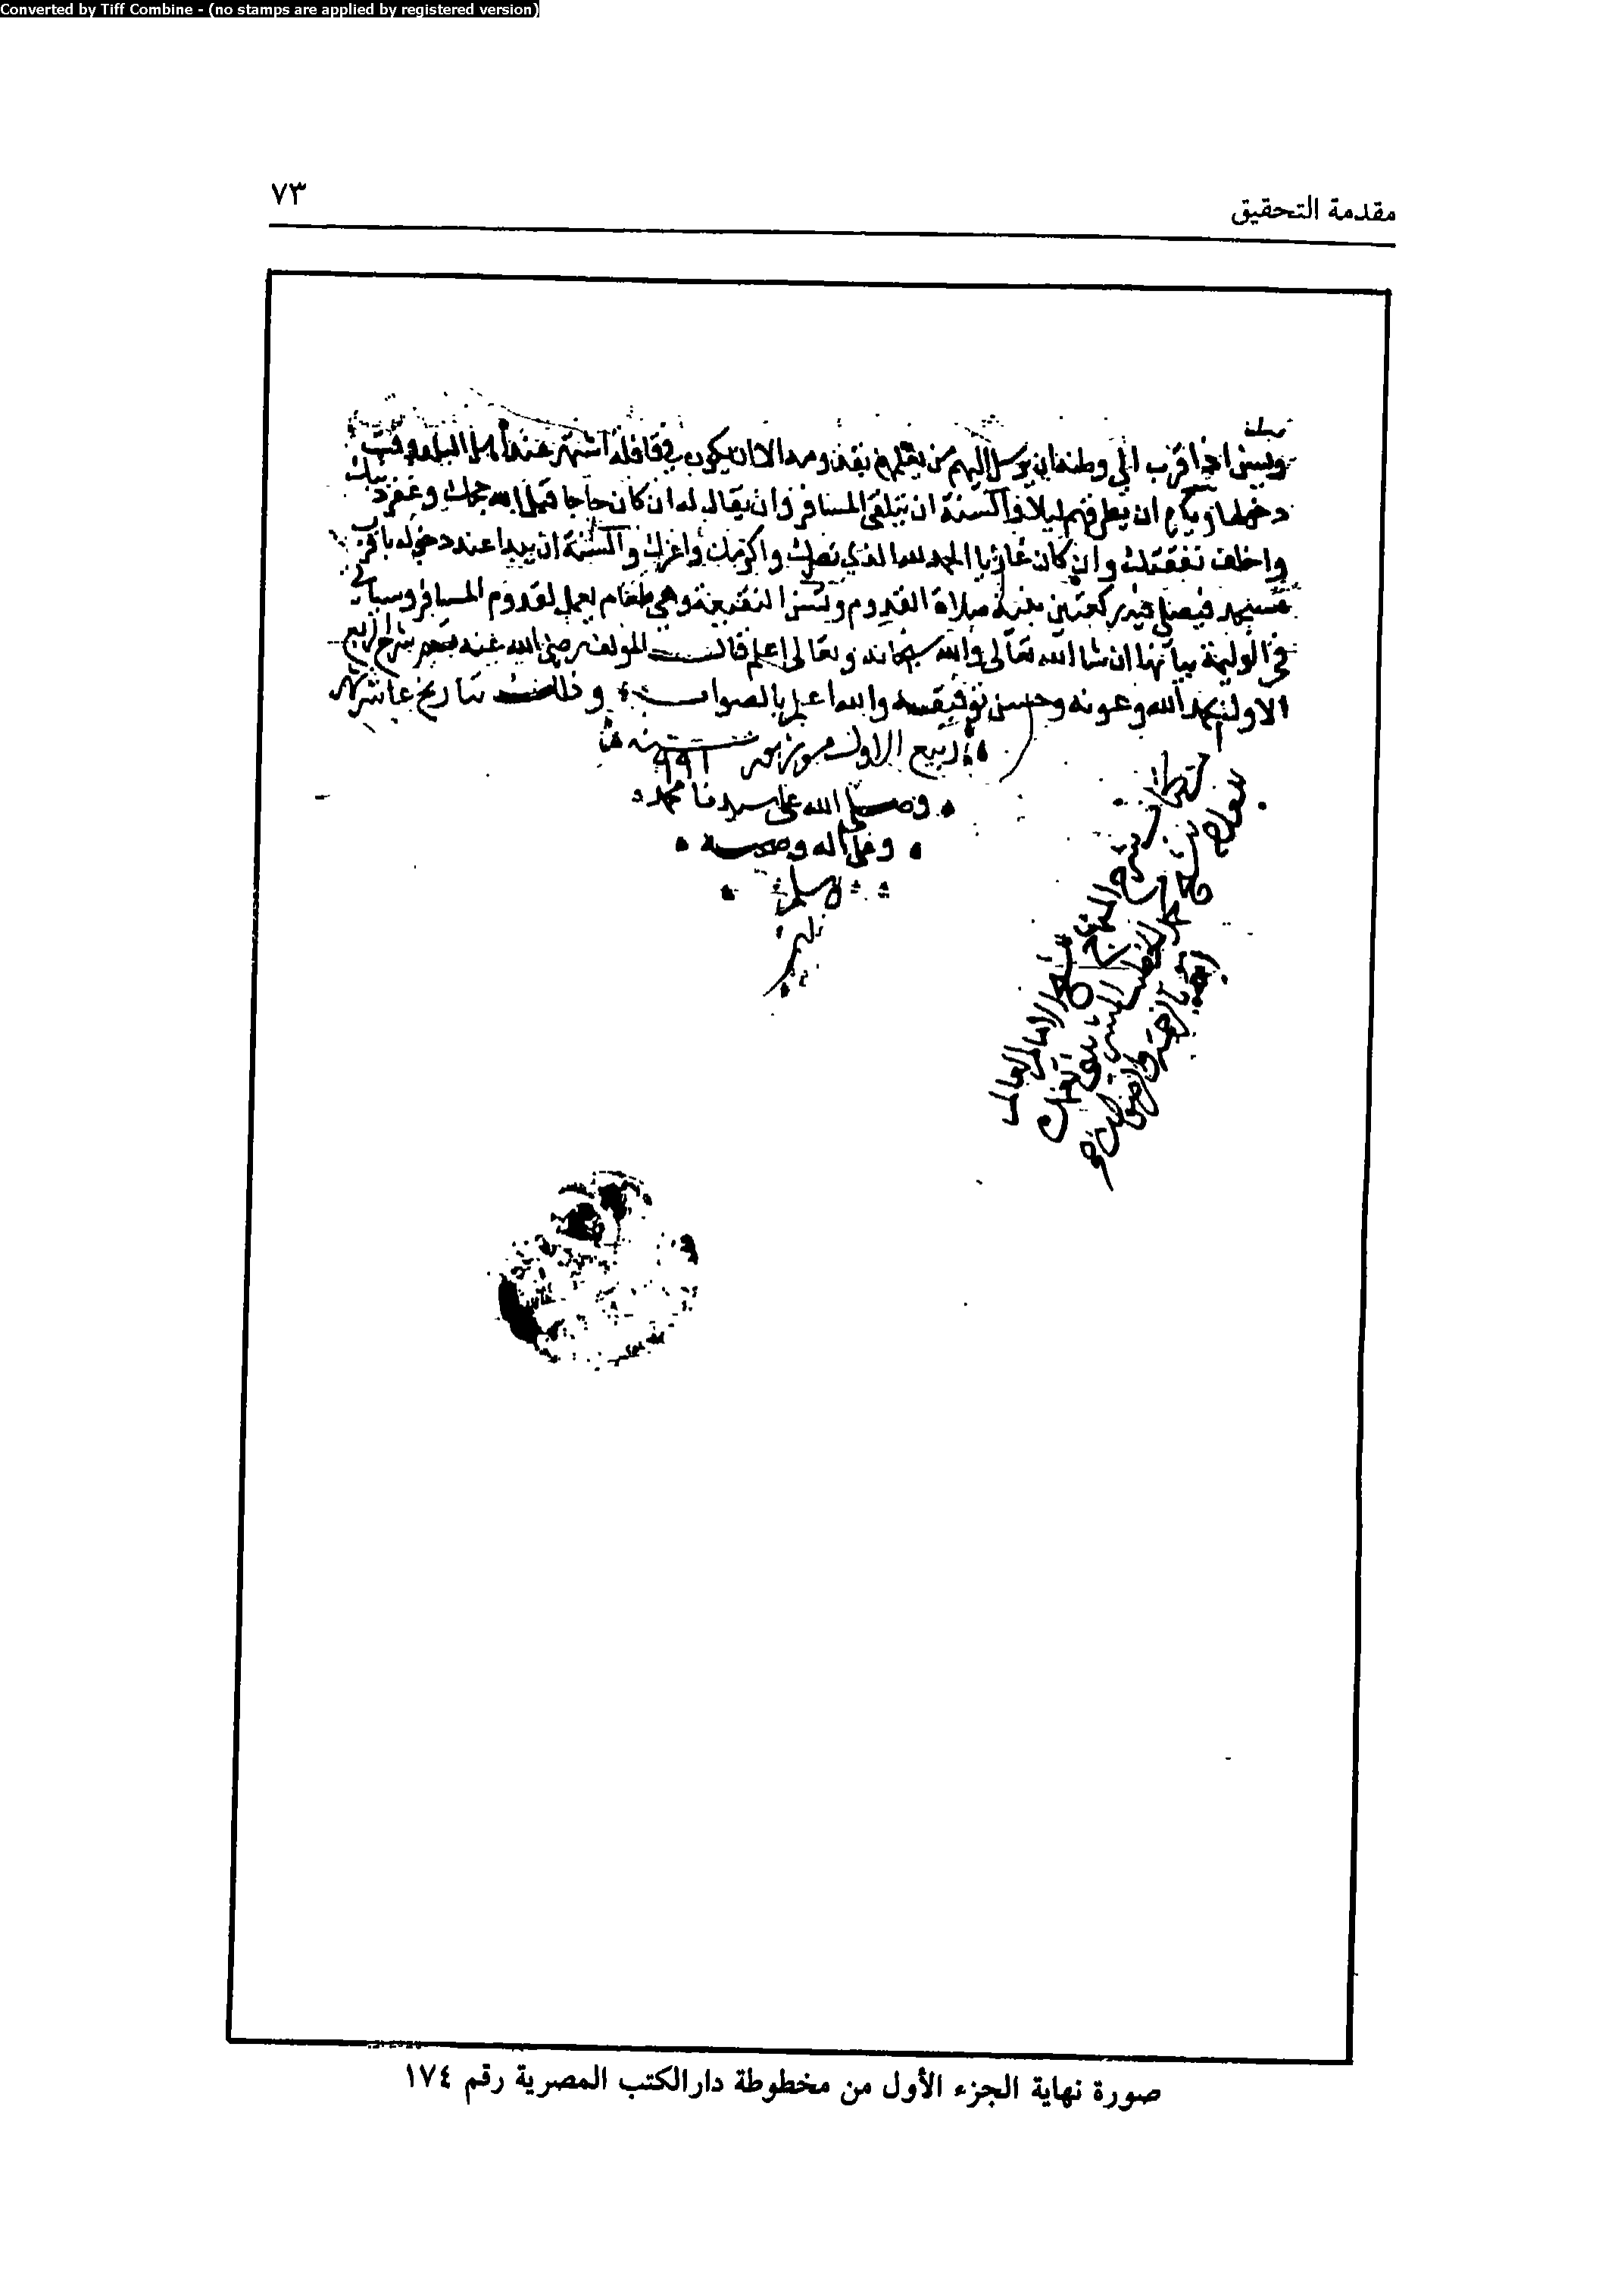 Converted by Tiff Combine - (no stamps are applied by registered version)
مقدمة التحقيق
٧٣
ويسن اذا قرب الى وطنه ان يرسل اليهم من يعلمهم بقدومه الا ان يكون في قافلة اشتهر عند أهل البلد وقت
دخولها ويكره ان يطرقهم ليلا والسنة ان يتلقى المسافر وان يقال له ان كان حاجا قبل الله حجك وغفر ذنبك
واخلف نفقتك وان كان غازيا الحمد لله الذي نصرك واكرمك واعزك والسنة ان يبدا عند دخوله باقرب
مسجد فيصلي فيه ركعتين بنية صلاة القدوم وتسن النقيعة وهي طعام يعمل لقدوم المسافر وسياتي
في الوليمة بيانها ان شا الله تعالى والله سبحانه وتعالى اعلم قال المولف رضي الله عنه شرح الربع
الاول بحمد الله وعونه وحسن توفيقه والله اعلم بالصواب وذلك بتاريخ عاشر شهر
ربيع الاول من شهور سنة ٩٩٦
وصلى الله على سيدنا محمد
وعلى اله وصحبه
وسلم
صورة نهاية الجزء الأول من مخطوطة دار الكتب المصرية رقم ١٧٤